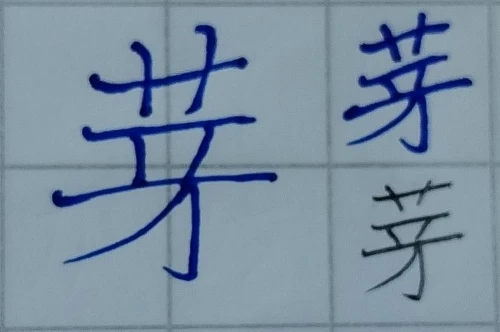 芽
芽
芽